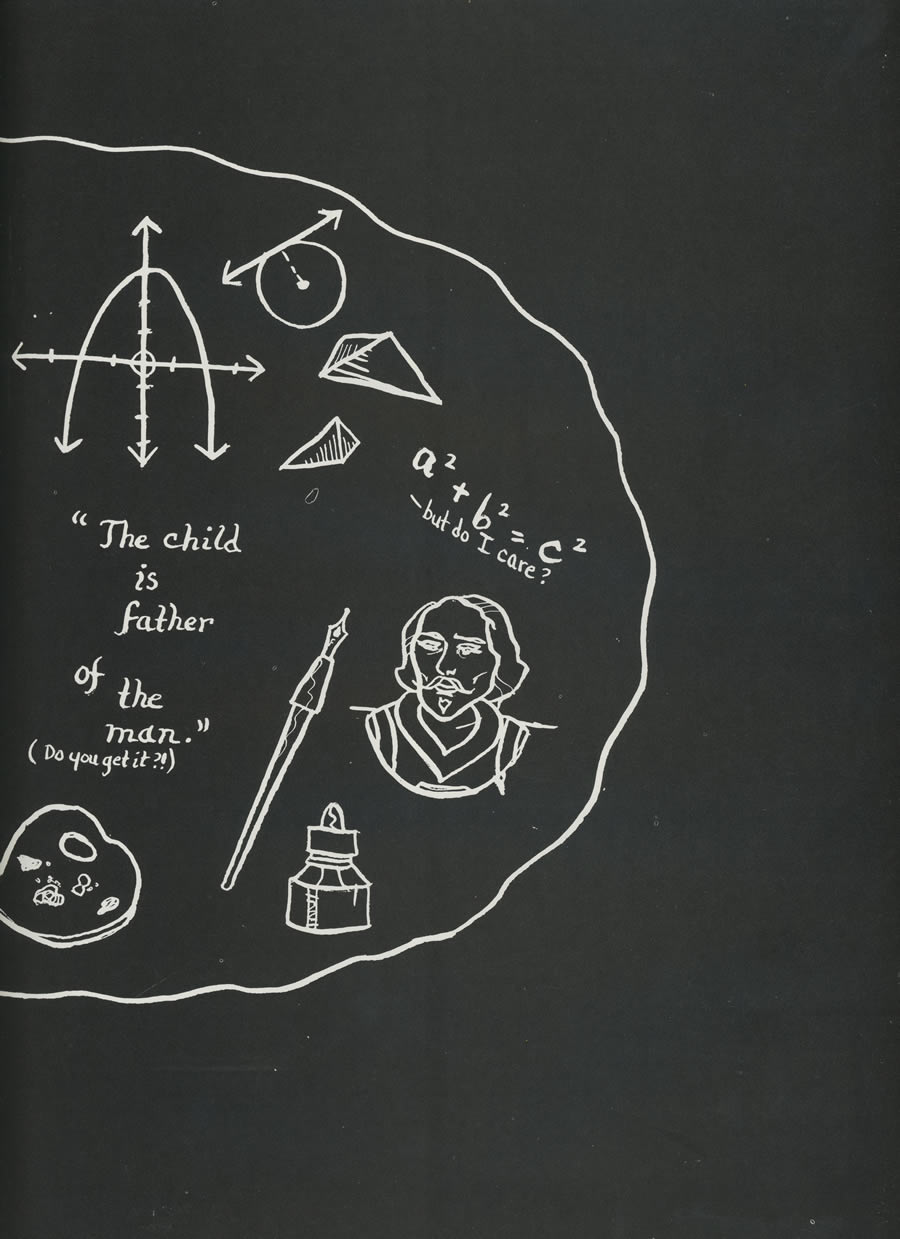 a² + b² = c²
-but do I care?
"The child
is
father
of the
man."
(Do you get it?!)